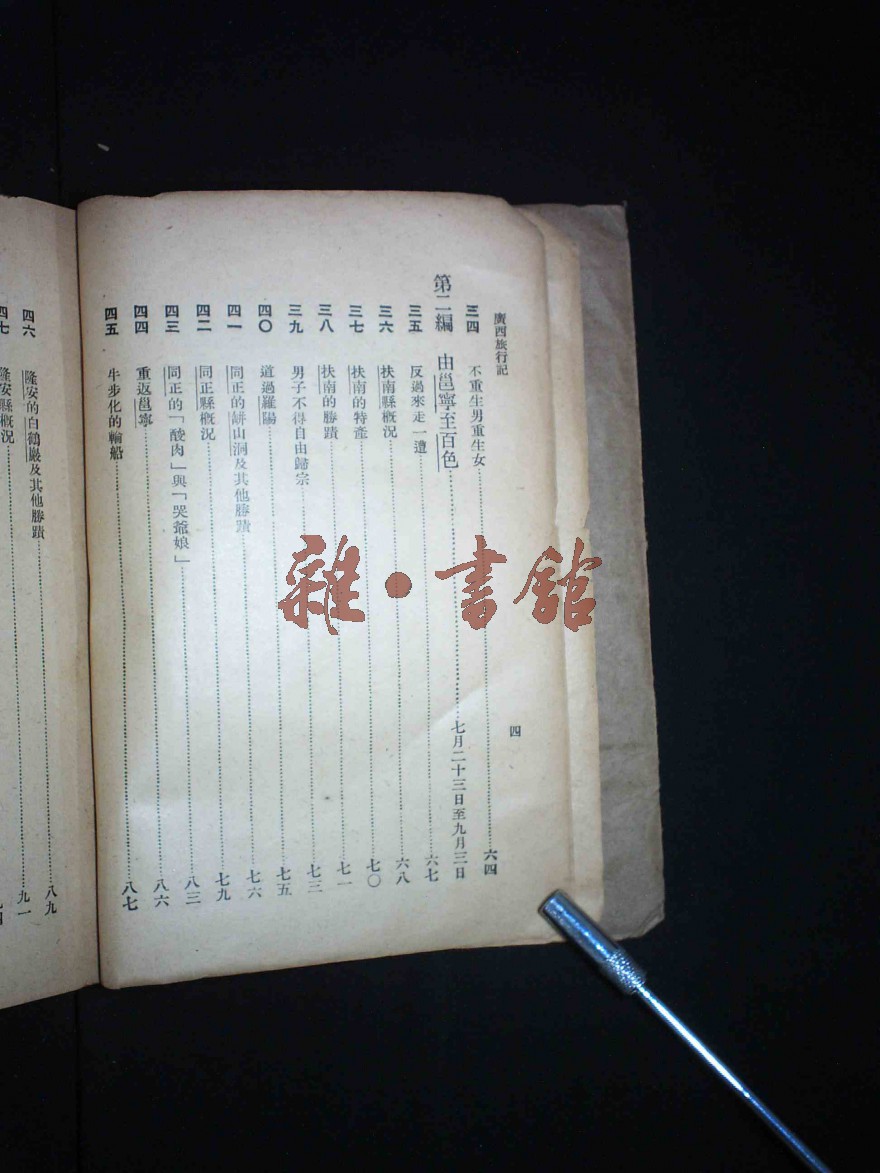 廣西旅行記
四
三四 不重生男重生女 六四
第二編 由邕寧至百色 七月二十三日至九月三日
三五 反過來走一遭 六七
三六 扶南縣概況 六八
三七 扶南的特產 七〇
三八 扶南的勝蹟 七一
三九 男子不得自由歸宗 七三
四〇 道過羅陽 七五
四一 同正的 山洞及其他勝蹟 七六
四二 同正縣概況 七九
四三 同正的「酸肉」與「哭爺娘」 八三
四四 重返邕寧 八六
四五 牛步化的輪船 八七
四六 隆安的白鶴巖及其他勝蹟 八九
四七 隆安縣概況 九一
雜·書館